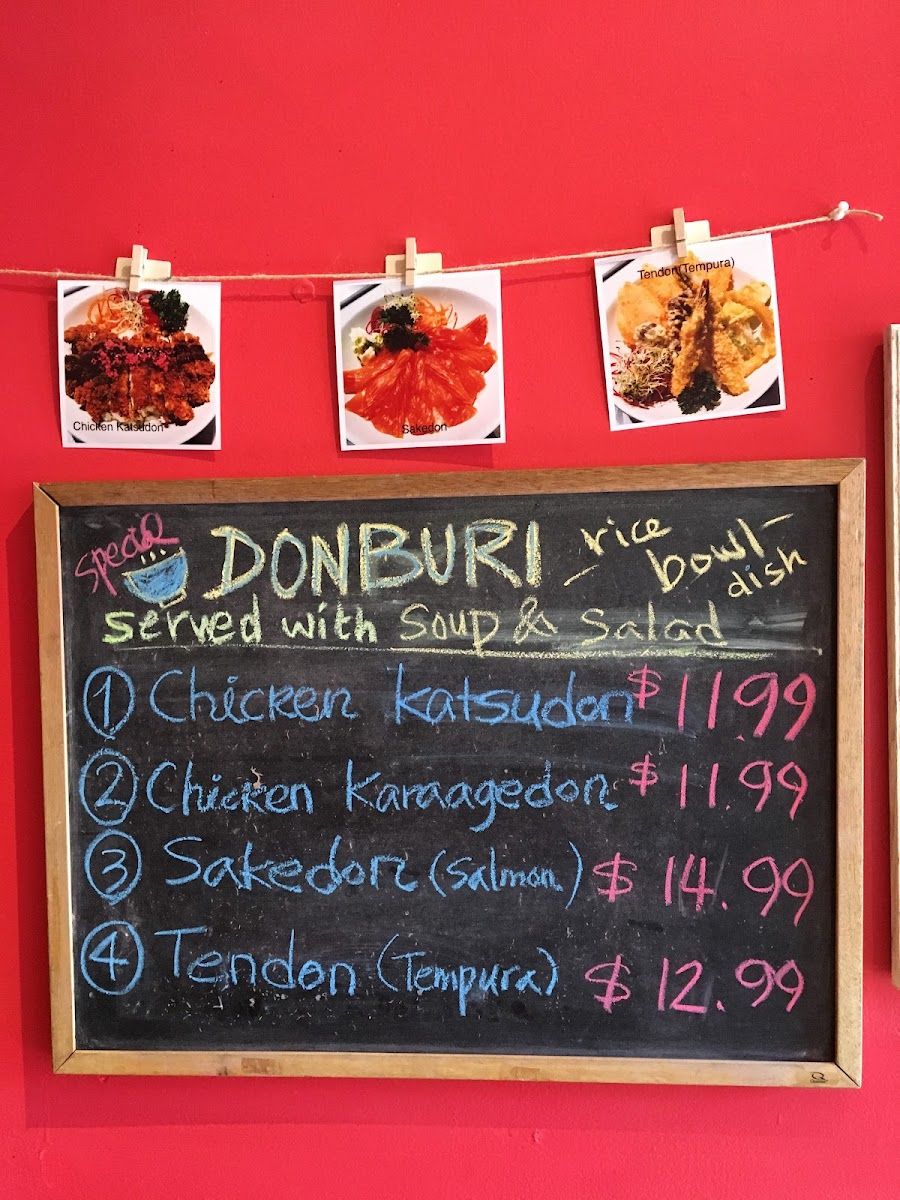 Tendon(Tempura)
Chicken Katsudon
Sakedon
special
DONBURI
-rice
bowl-
dish
served with Soup & Salad
1 Chicken katsudon $11.99
2 Chicken Karaagedon $11.99
3 Sakedon (Salmon) $14.99
4 Tendon (Tempura) $12.99